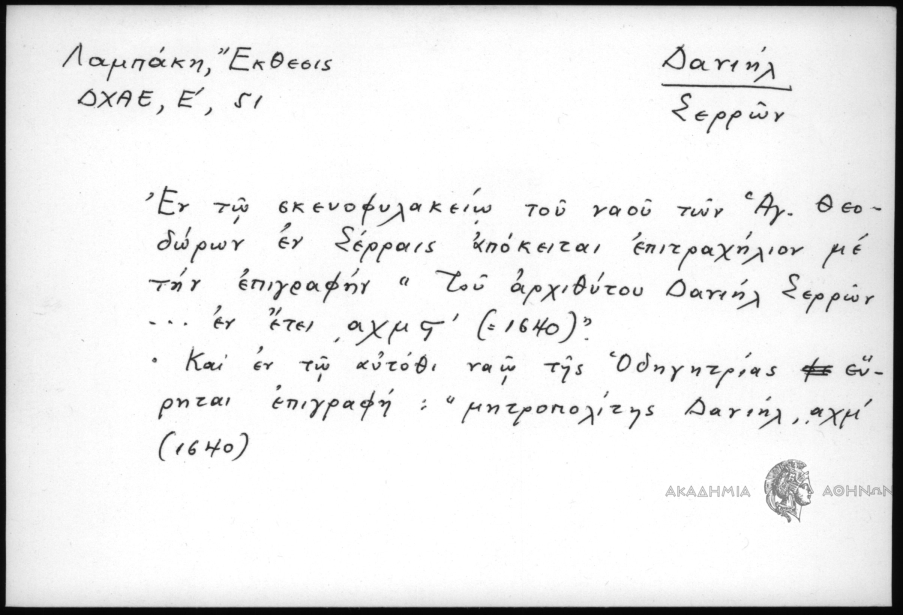 Λαμπάκη, Ἔκθεσις
ΔΧΑΕ, Ε', 51
Δανιήλ
Σερρῶν
Ἐν τῷ σκευοφυλακείῳ τοῦ ναοῦ τῶν Ἁγ. Θεο-
δώρων ἐν Σέρραις ἀπόκειται ἐπιτραχήλιον μέ
τήν ἐπιγραφήν "Τοῦ ἀρχιθύτου Δανιήλ Σερρῶν
... ἐν ἔτει ͵αχμϛ' (=1640)".
• Καί ἐν τῷ αὐτόθι ναῷ τῆς Ὁδηγητρίας εὕ-
ρηται ἐπιγραφή : "μητροπολίτης Δανιήλ, ͵αχμ'
(1640)
ΑΚΑΔΗΜΙΑ ΑΘΗΝΩΝ